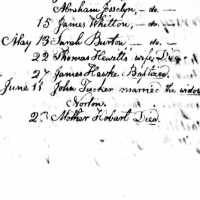 Abraham Josclyn, - do -
15 James Whitton, - do -
May 13 Sarah Burton - do -
22 Thomas Hewett's wife, Died
27 James Hawke. Baptized.
June 11 John Tucker married the widow
Norton.
23 Mother Hobart Died.